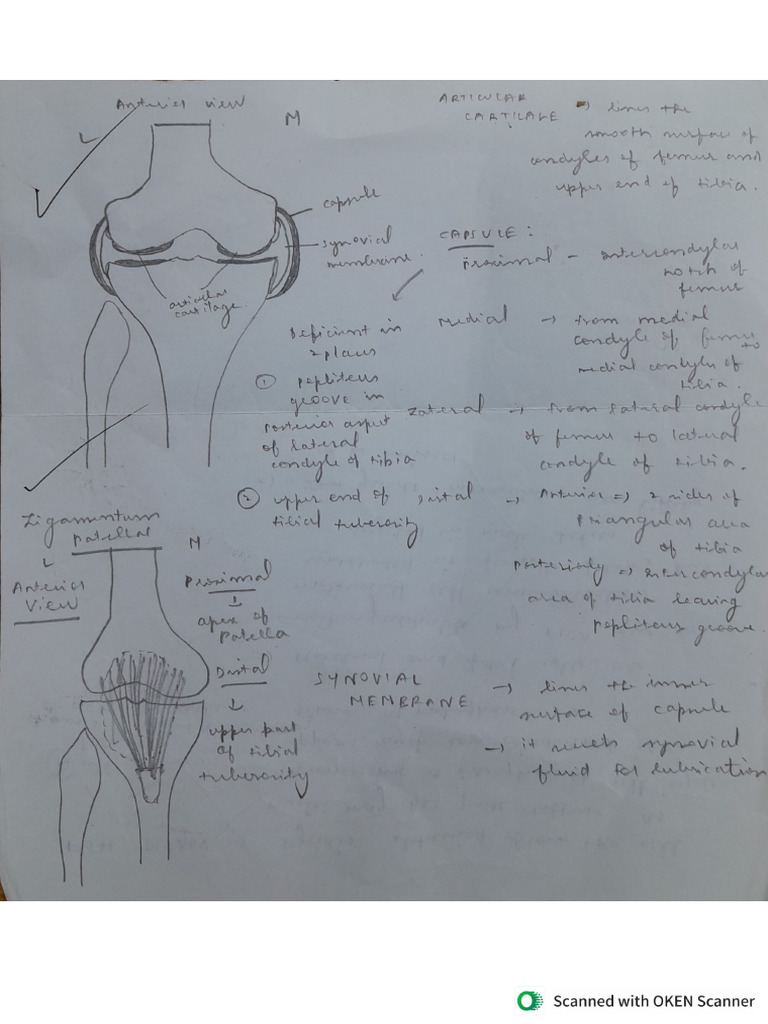 Anterior view
L
M
capsule
synovial
membrane.
articular
cartilage.
ARTICULAR
CARTILAGE → lines the
smooth surface of
condyles of femur and
upper end of tibia.
CAPSULE :
Proximal – intercondylar
notch of
femur
Medial → from medial
condyle of femur to
medial condyle of
tibia.
Lateral → from lateral condyle
of femur to lateral
condyle of tibia.
Distal → Anterior ⇒ 2 sides of
triangular area
of tibia
Posteriorly ⇒ intercondylar
area of tibia leaving
popliteus groove.
Deficient in
2 places
① popliteus
groove in
posterior aspect
of lateral
condyle of tibia
② upper end of
tibial tuberosity
Ligamentum
Patellae
L
M
Anterior
View
Proximal
↓
apex of
Patella
Distal
↓
upper part
of tibial
tuberosity
SYNOVIAL
MEMBRANE → lines the inner
surface of capsule
→ it synovial
fluid for lubrication
Scanned with OKEN Scanner